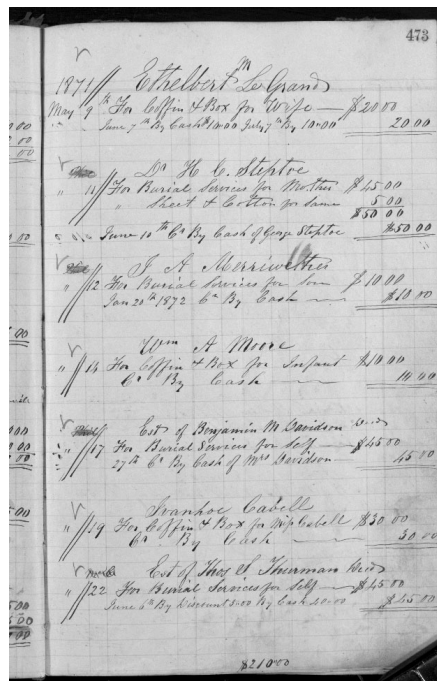 473
1871 Ethelbert M Le Grand
May 9th For Coffin & Box for Wife — $20 00
June 7th By Cash $10.00 July 7th By 10.00 20 00
Dr H. C. Steptoe
" 11 For Burial Services for Mother $45 00
" Sheet & Cotton for Same 5 00
$50 00
June 10th Cr By Cash of George Steptoe $50 00
J A Merriwether
" 12 For Burial Services for Son $10 00
Jan 20th 1872 Cr By Cash — $10 00
Wm A Moore
" 14 For Coffin & Box for Infant $10 00
Cr By Cash — 10 00
Est of Benjamin M Davidson Decd
" 17 For Burial Services for Self — $45 00
27th Cr By Cash of Mrs Davidson — 45 00
Ivanhoe Cabell
" 19 For Coffin & Box for Cabell $30 00
Cr By Cash — 30 00
Est of Thos S. Thurman Decd
" 22 For Burial Services for Self — $45 00
June 6th By Discount 5.00 By Cash 40.00 $45 00
$210.00